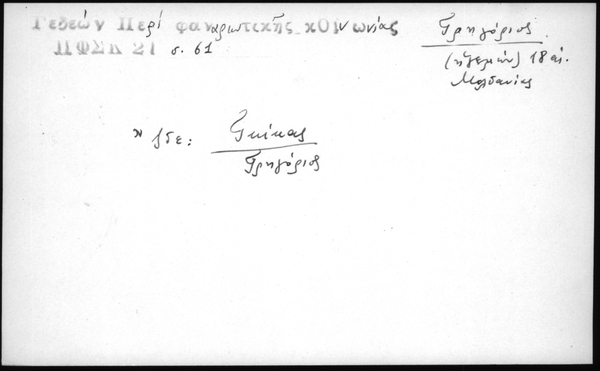 Γεδεών Περί φαναριωτικῆς κΟΙνωνίας
ΠΦΣΚ 21 σ. 61
Γρηγόριος
(ηγεμών) 18 αι.
Μολδανίας
ἴδε:
Γκίκας
Γρηγόριος